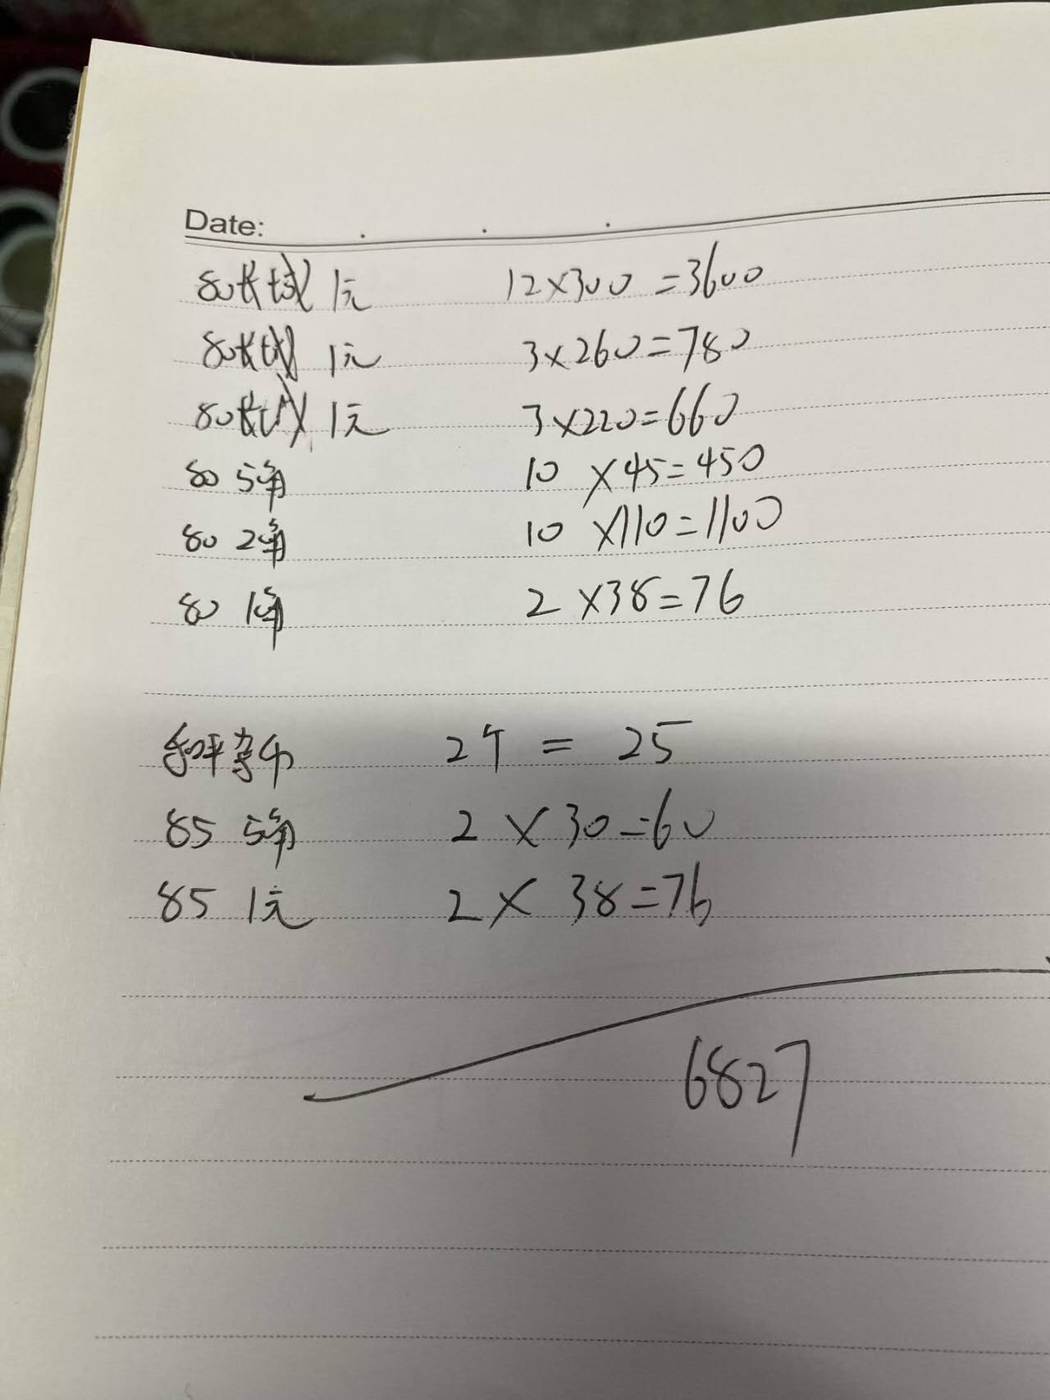 Date:
80长城1元 12×300=3600
80长城1元 3×260=780
80长城1元 3×220=660
80 5角 10×45=450
80 2角 10×110=1100
80 1角 2×38=76
和平等币 2个=25
85 5角 2×30=60
85 1元 2×38=76
6827